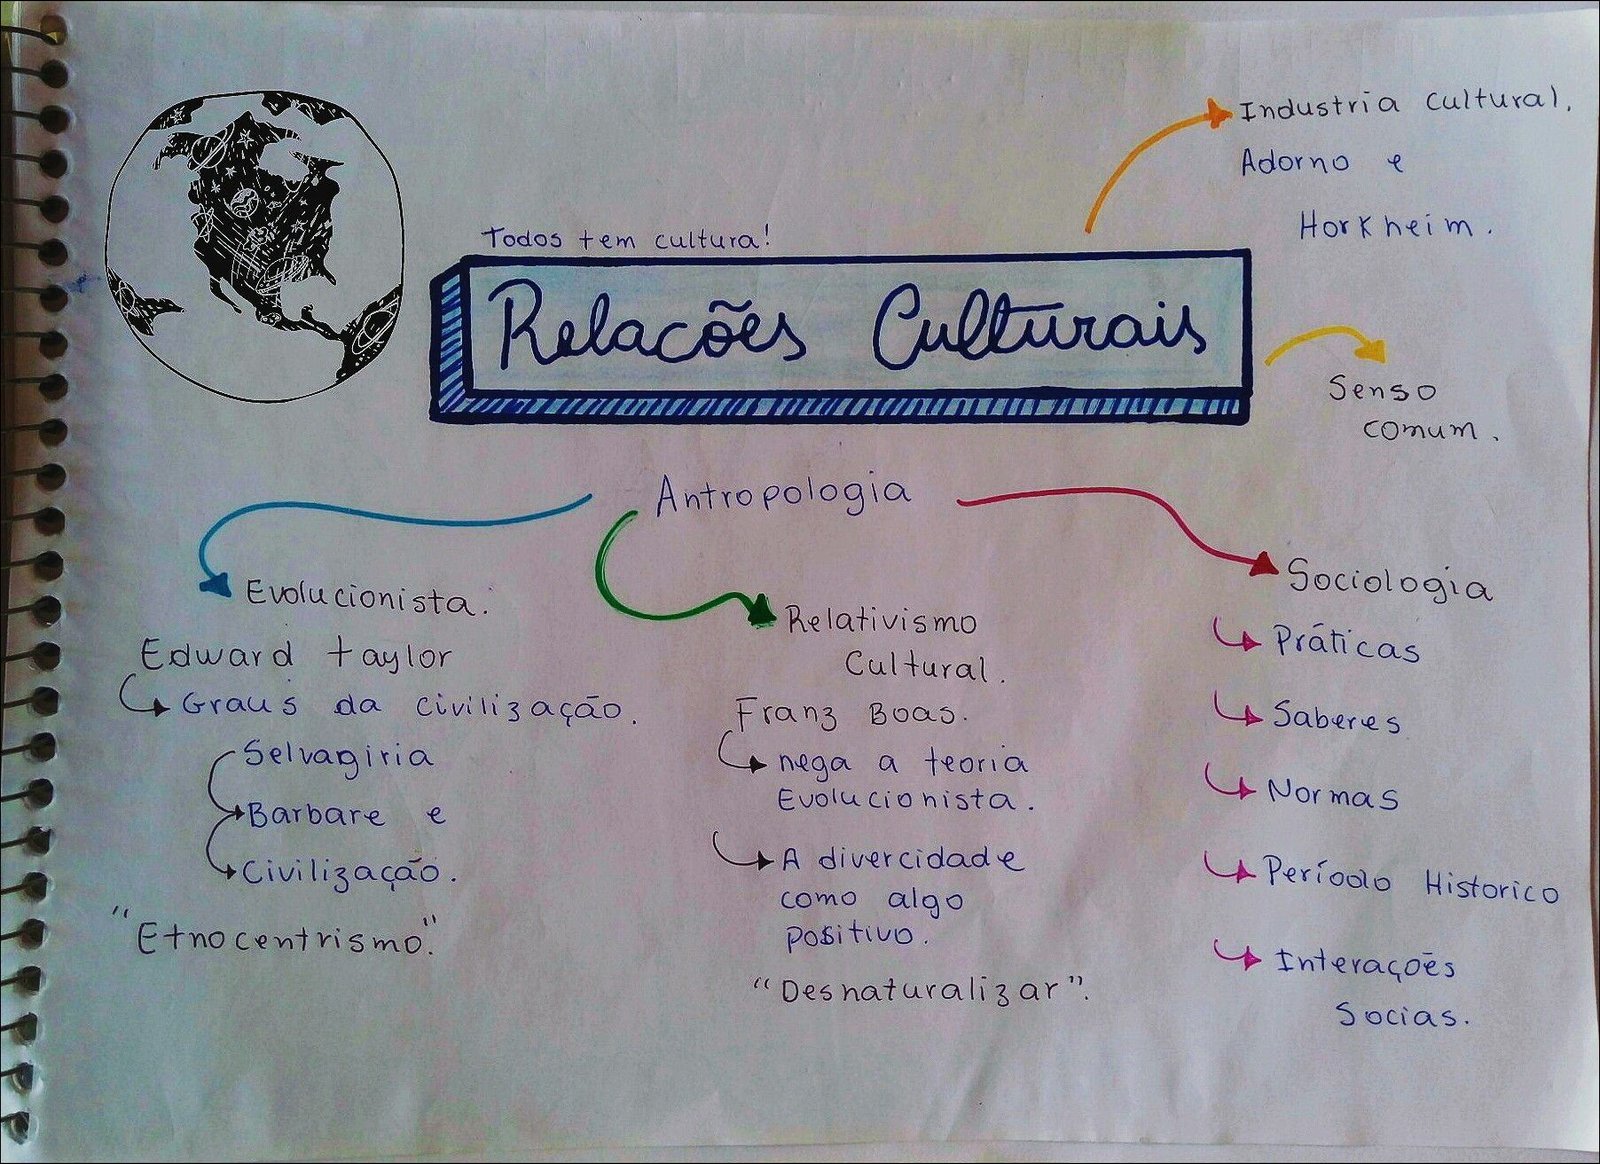 Industria cultural.
Adorno e
Horkheim.
Todos tem cultura!
Relacões Culturais
Senso
comum.
Antropologia
Evolucionista.
Edward taylor
Graus da civilização.
Selvagiria
Barbare e
Civilização.
"Etnocentrismo".
Relativismo
Cultural.
Franz Boas.
nega a teoria
Evolucionista.
A divercidade
como algo
positivo.
"Desnaturalizar".
Sociologia
Práticas
Saberes
Normas
Período Historico
Interações
Socias.